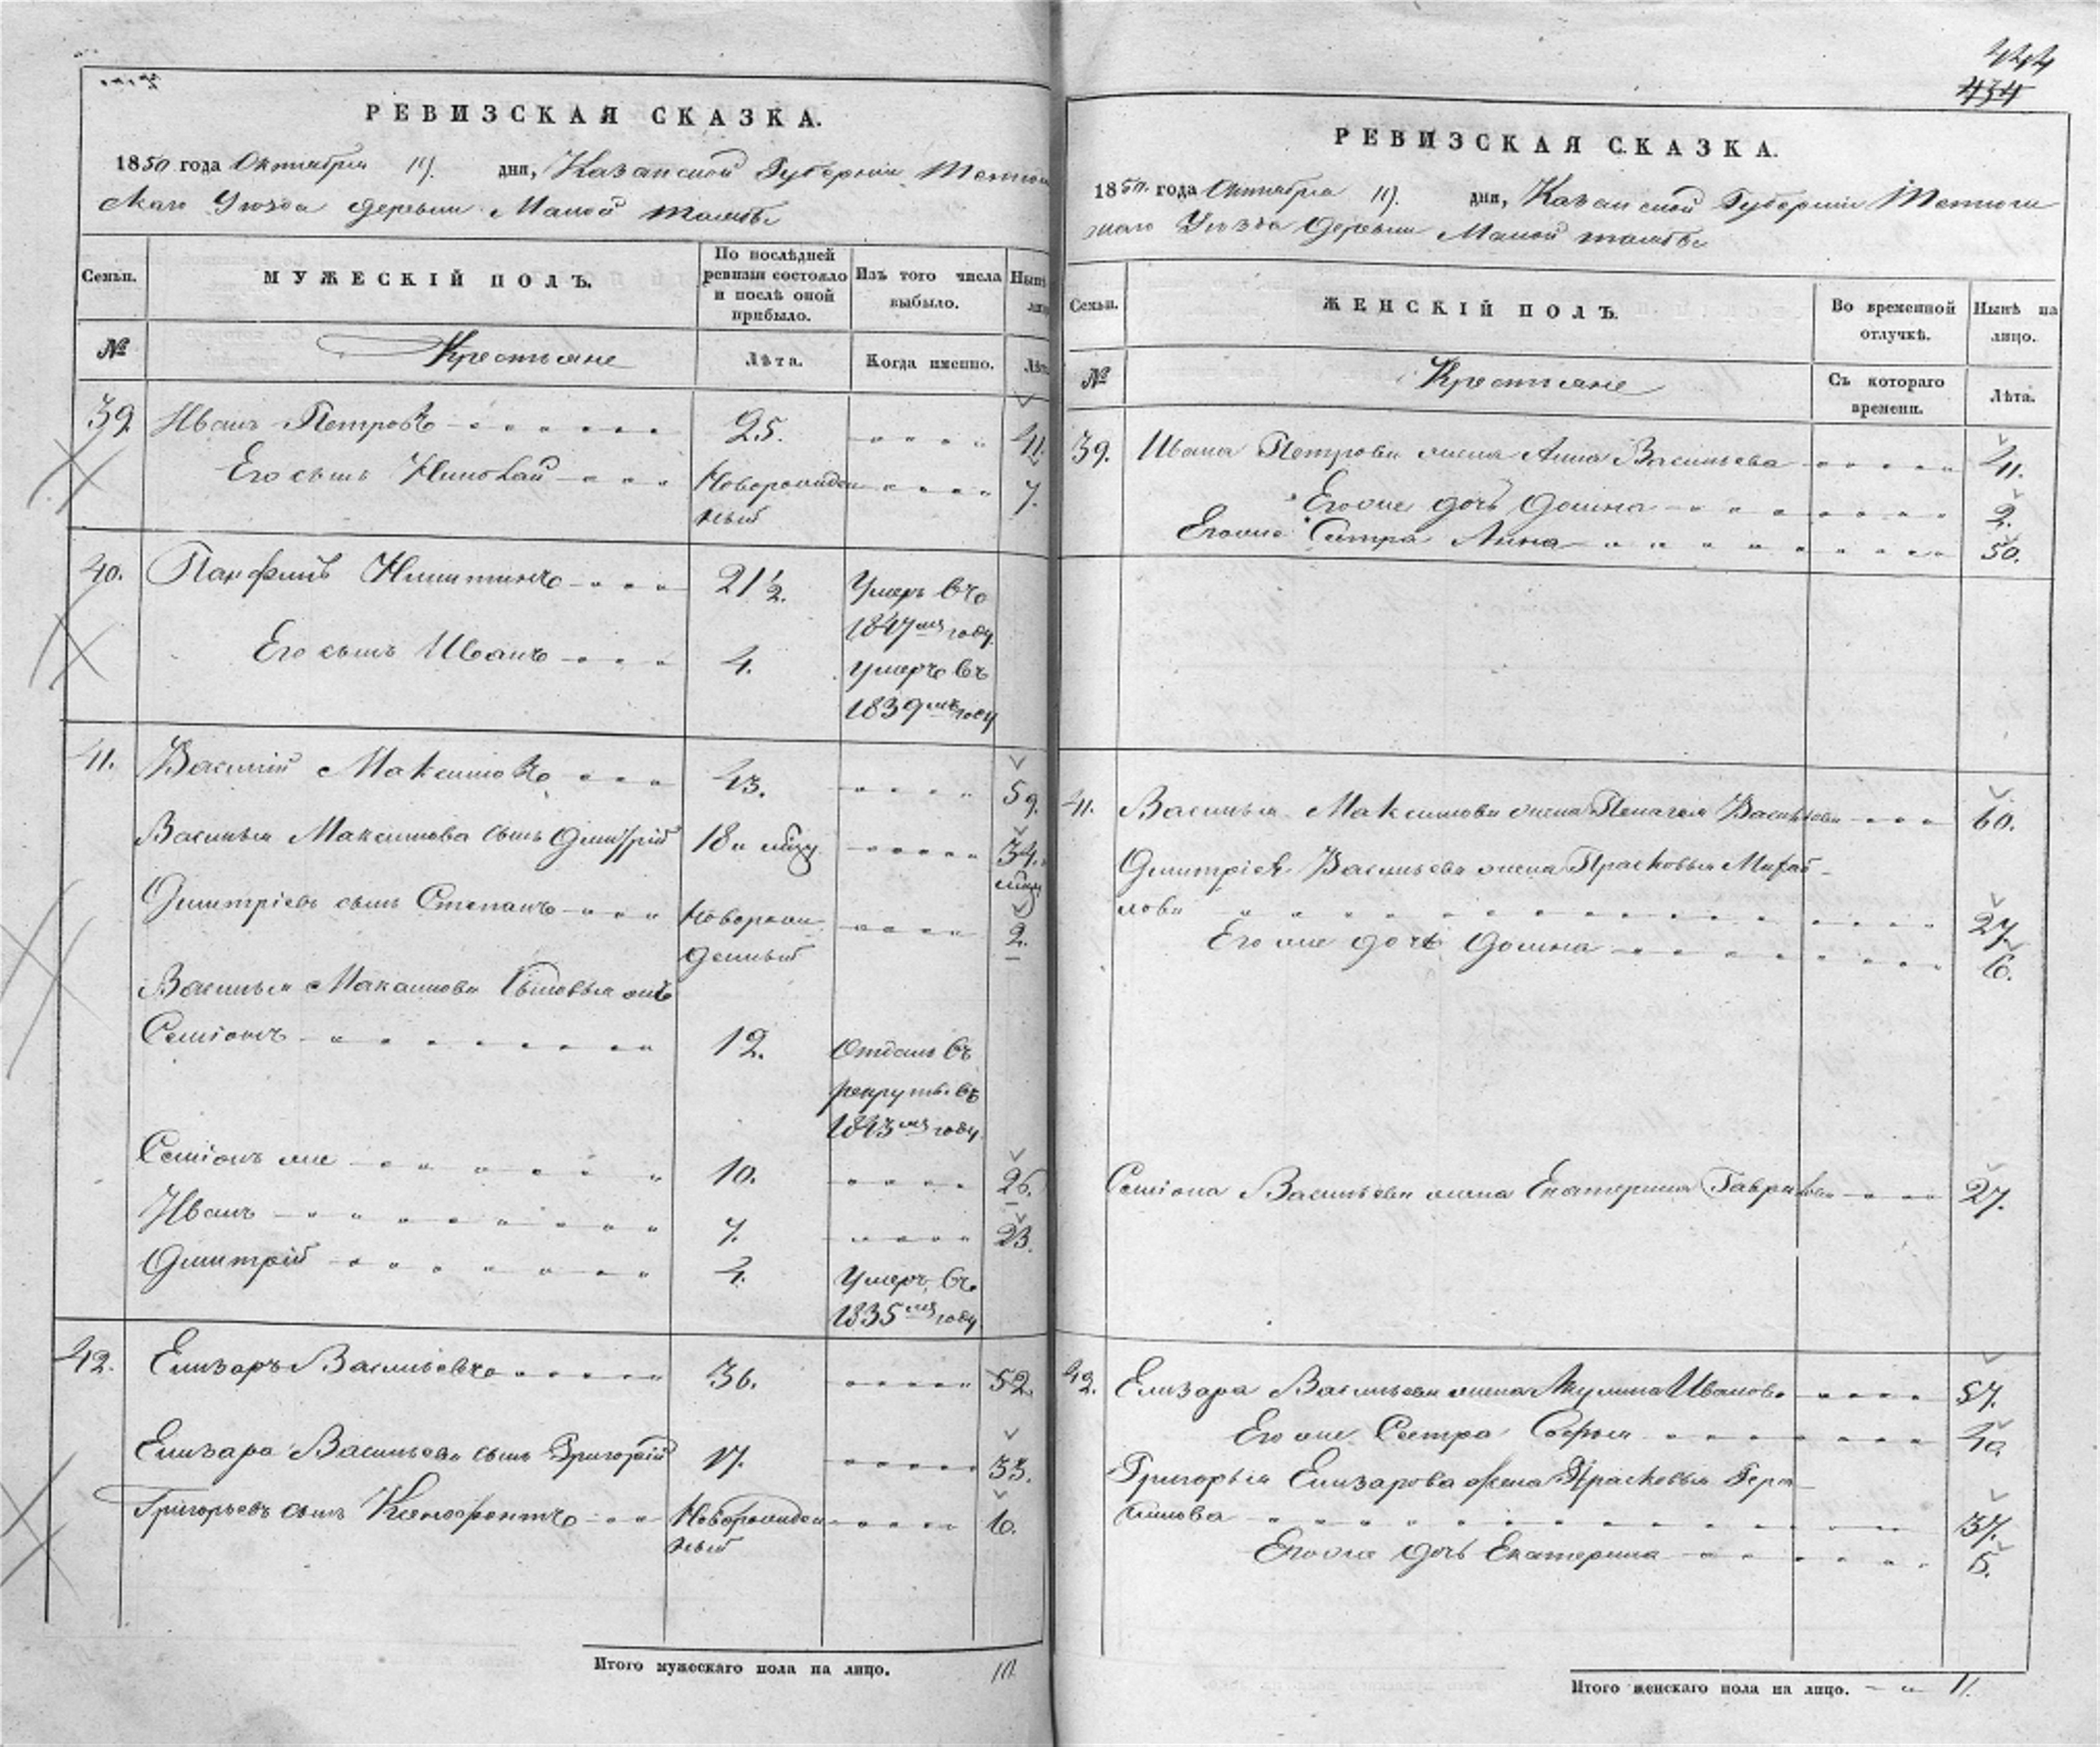 РЕВИЗСКАЯ СКАЗКА.
1850 года Октября 19. дни, Казанской Губернiи
Уѣзда деревни Малой
Семьи.
МУЖЕСКIЙ ПОЛЪ.
По послѣдней ревизiи состояло и послѣ оной прибыло.
Изъ того числа выбыло.
Нынѣ
№
Крестьяне
Лѣта.
Когда именно.
Лѣт
39 Иванъ Петровъ 25. 41.
Его сынъ Николай Новорожден 7.
ный
40. Панфилъ Никитинъ 21 1/2. Умеръ въ
1847мъ году.
Его сынъ Иванъ 4. умеръ въ
1839мъ году
41. Василiй Максимовъ 43. 59.
Василья Максимова сынъ Дмитрiй 18 34.
Дмитрiевъ сынъ Степанъ Новорож- 2.
денный
Василья Максимова Сыновья
Семiонъ 12. Отданъ въ
рекруты въ
1843мъ году.
Семiонъ же 10. 26.
Иванъ 7. 23.
Дмитрiй 4. Умеръ въ
1835мъ году
42. Елизаръ Васильевъ 36. 52.
Елизара Васильева сынъ Григорiй 17. 33.
Григорьевъ сынъ Ксенофонтъ Новорожден 10.
ный
Итого мужескаго пола на лицо. 10.
444
434
РЕВИЗСКАЯ СКАЗКА.
1850. года Октября 19. дни, Казанской Губернiи
Уѣзда деревни Малой
Семьи.
ЖЕНСКIЙ ПОЛЪ.
Во временной отлучкѣ.
Нынѣ на лицо.
№
Крестьяне
Съ котораго времени.
Лѣта.
39. Ивана Петрова жена Анна Васильева 41.
Его же дочь Домна 2.
Его же Сестра Анна 50.
41. Василья Максимова жена Пелагея Васильева 60.
Дмитрiя Васильева жена Прасковья Михай-
лова 27.
Его же дочь Домна 6.
Семiона Васильева жена Екатерина Гаврилова 27.
42. Елизара Васильева жена Акулина Иванова 57.
Его же Сестра Софья 40.
Григорья Елизарова жена Прасковья Гера-
симова 37.
Его же дочь Екатерина 5.
Итого женскаго пола на лицо. 11.